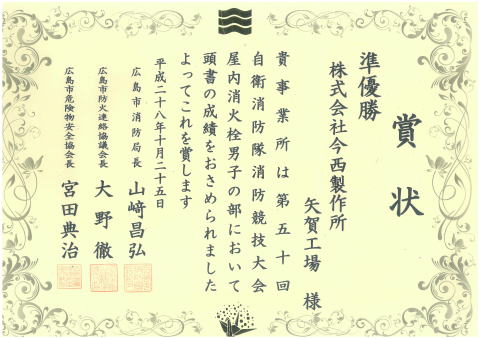 賞状
準優勝
株式会社今西製作所
矢賀工場 様
貴事業所は第五十回
自衛消防隊消防競技大会
屋内消火栓男子の部において
頭書の成績をおさめられました
よってこれを賞します
平成二十八年十月二十五日
広島市消防局長 山﨑昌弘
広島市防火連絡協議会長 大野徹
広島市危険物安全協会長 宮田典治